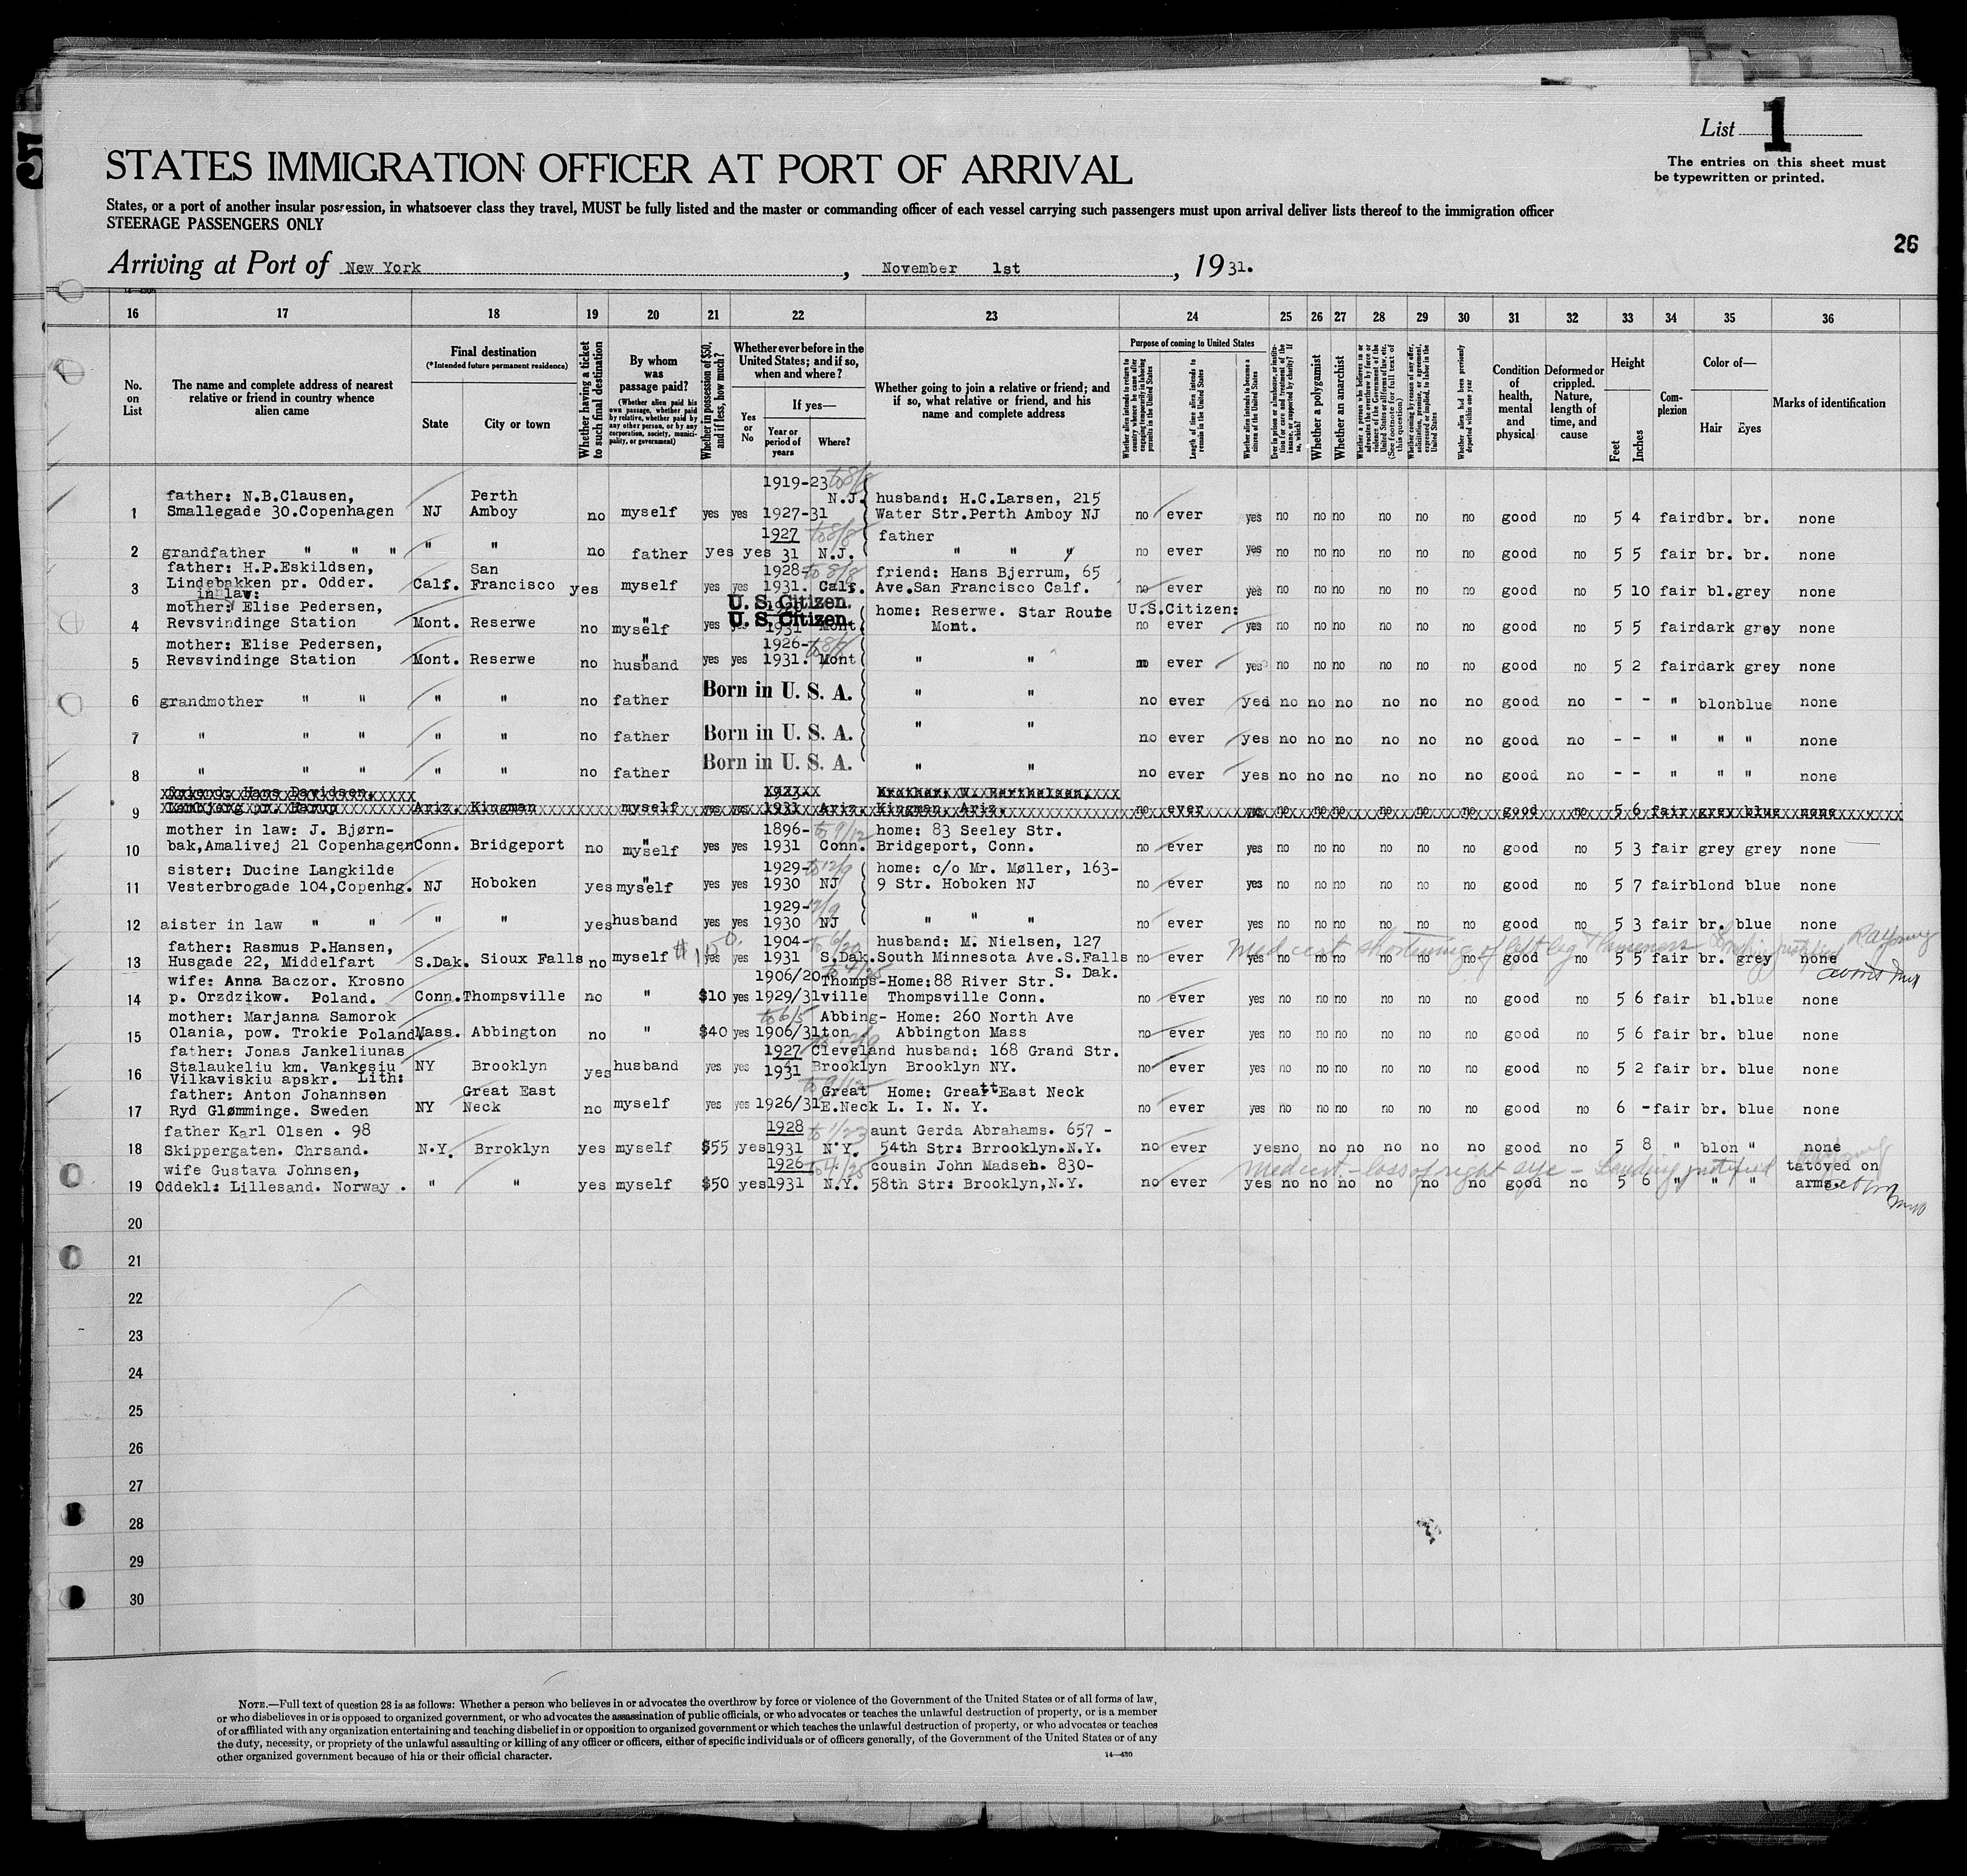 5
List 1
The entries on this sheet must
be typewritten or printed.
STATES IMMIGRATION OFFICER AT PORT OF ARRIVAL
States, or a port of another insular possession, in whatsoever class they travel, MUST be fully listed and the master or commanding officer of each vessel carrying such passengers must upon arrival deliver lists thereof to the immigration officer
STEERAGE PASSENGERS ONLY
26
Arriving at Port of New York, November 1st, 1931.
16 17 18 19 20 21 22 23 24 25 26 27 28 29 30 31 32 33 34 35 36
No. on List
The name and complete address of nearest relative or friend in country whence alien came
Final destination (*Intended future permanent residence)
State
City or town
Whether having a ticket to such final destination
By whom was passage paid?
(Whether alien paid his own passage, whether paid by relative, whether paid by any other person, or by any corporation, society, municipality, or government)
Whether in possession of $50, and if less, how much?
Whether ever before in the United States; and if so, when and where?
Yes or No
If yes—
Year or period of years
Where?
Whether going to join a relative or friend; and if so, what relative or friend, and his name and complete address
Purpose of coming to United States
Whether alien intends to return to country whence he came after engaging temporarily in laboring pursuits in the United States
Length of time alien intends to remain in the United States
Whether alien intends to become a citizen of the United States
Whether a polygamist
Whether an anarchist
Whether alien had been previously deported within one year
Condition of health, mental and physical
Deformed or crippled. Nature, length of time, and cause
Height
Feet
Inches
Complexion
Color of—
Hair
Eyes
Marks of identification
1919-23 to 8/8
father: N.B.Clausen, Perth N.J. husband: H.C.Larsen, 215
1 Smallegade 30.Copenhagen NJ Amboy no myself yes yes 1927-31 Water Str.Perth Amboy NJ no ever yes no no no no no no good no 5 4 fair dbr. br. none
1927 to 8/8 father
2 grandfather " " " " " no father yes yes 31 N.J. " " " no ever yes no no no no no no good no 5 5 fair br. br. none
father: H.P.Eskildsen, San 1928- to 8/8 friend: Hans Bjerrum, 65
3 Lindebakken pr. Odder. Calf. Francisco yes myself yes yes 1931. Calf. Ave.San Francisco Calf. no ever yes no no no no no no good no 5 10 fair bl. grey none
in law: U. S. Citizen.
mother: Elise Pedersen, home: Reserwe. Star Route U.S.Citizen:
4 Revsvindinge Station Mont. Reserwe no myself yes U. S. Citizen. 1931 Mont. Mont. no ever yes no no no no no no good no 5 5 fair dark grey none
mother: Elise Pedersen, 1926-
5 Revsvindinge Station Mont. Reserwe no husband yes yes 1931. Mont " " ever yes no no no no no no good no 5 2 fair dark grey none
6 grandmother " " " " no father Born in U. S. A. " " no ever yed no no no no no no good no - - " blon blue none
7 " " " " " no father Born in U. S. A. " " no ever yes no no no no no no good no - - " " " none
8 " " " " " no father Born in U. S. A. " " no ever yes no no no no no no good no - - " " " none
friend: Hans Davidsen,
9 Ariz. Kingman myself yes yes 1931 Ariz. Kingman Ariz. no ever no no no no no no good no 5 6 fair grey blue none
mother in law: J. Bjørn- 1896- to 9/12 home: 83 Seeley Str.
10 bak,Amalivej 21 Copenhagen Conn. Bridgeport no myself yes yes 1931 Conn. Bridgeport, Conn. no ever yes no no no no no no good no 5 3 fair grey grey none
sister: Ducine Langkilde 1929- to 12/9 home: c/o Mr. Møller, 163-
11 Vesterbrogade 104,Copenhg. NJ Hoboken yes myself yes yes 1930 NJ 9 Str. Hoboken NJ no ever yes no no no no no no good no 5 7 fair blond blue none
1929-
12 aister in law " " " " yes husband yes yes 1930 NJ " " " no ever yes no no no no no no good no 5 3 fair br. blue none
father: Rasmus P.Hansen, $150. 1904- husband: M. Nielsen, 127 Med cert shortening of left leg & lameness Landing justified
13 Husgade 22, Middelfart S.Dak. Sioux Falls no myself yes yes 1931 S.Dak. South Minnesota Ave.S.Falls no ever yes no no no no no no good no 5 5 fair br. grey none
wife: Anna Baczor. Krosno 1906/20 Thomps- Home:88 River Str. S. Dak.
14 p. Orzdzikow. Poland. Conn. Thompsville no " $10 yes 1929/31 ville Thompsville Conn. no ever yes no no no no no no good no 5 6 fair bl. blue none
mother: Marjanna Samorok to 6/5 Abbing- Home: 260 North Ave
15 Olania, pow. Trokie Poland. Mass. Abbington no " $40 yes 1906/31 ton Abbington Mass no ever yes no no no no no no good no 5 6 fair br. blue none
father: Jonas Jankeliunas 1927 Cleveland husband: 168 Grand Str.
16 Stalaukeliu km. Vankesiu NY Brooklyn yes husband yes yes 1931 Brooklyn Brooklyn NY. no ever yes no no no no no no good no 5 2 fair br. blue none
Vilkaviskiu apskr. Lith:
father: Anton Johannsen Great East to 9/12 Great Home: Great East Neck
17 Ryd Glømminge. Sweden NY Neck no myself yes yes 1926/31 E.Neck L. I. N. Y. no ever yes no no no no no no good no 6 - fair br. blue none
father Karl Olsen . 98 1928 to 1/23 aunt Gerda Abrahams. 657 -
18 Skippergaten. Chrsand. N.Y. Brroklyn yes myself $55 yes 1931 N.Y. 54th Str: Brrooklyn.N.Y. no ever yes no no no no no no good no 5 8 " blon " none
wife Gustava Johnsen, 1926 to 4/25 cousin John Madsen. 830- Med cert. - loss of right eye - Landing justified tatoyed on
19 Oddekl: Lillesand. Norway . " " yes myself $50 yes 1931 N.Y. 58th Str: Brooklyn,N.Y. no ever yes no no no no no no good no 5 6 " " " arms.
20
21
22
23
24
25
26
27
28
29
30
NOTE.—Full text of question 28 is as follows: Whether a person who believes in or advocates the overthrow by force or violence of the Government of the United States or of all forms of law,
or who disbelieves in or is opposed to organized government, or who advocates the assassination of public officials, or who advocates or teaches the unlawful destruction of property, or is a member
of or affiliated with any organization entertaining and teaching disbelief in or opposition to organized government or which teaches the unlawful destruction of property, or who advocates or teaches
the duty, necessity, or propriety of the unlawful assaulting or killing of any officer or officers, either of specific individuals or of officers generally, of the Government of the United States or of any
other organized government because of his or their official character.
14—430